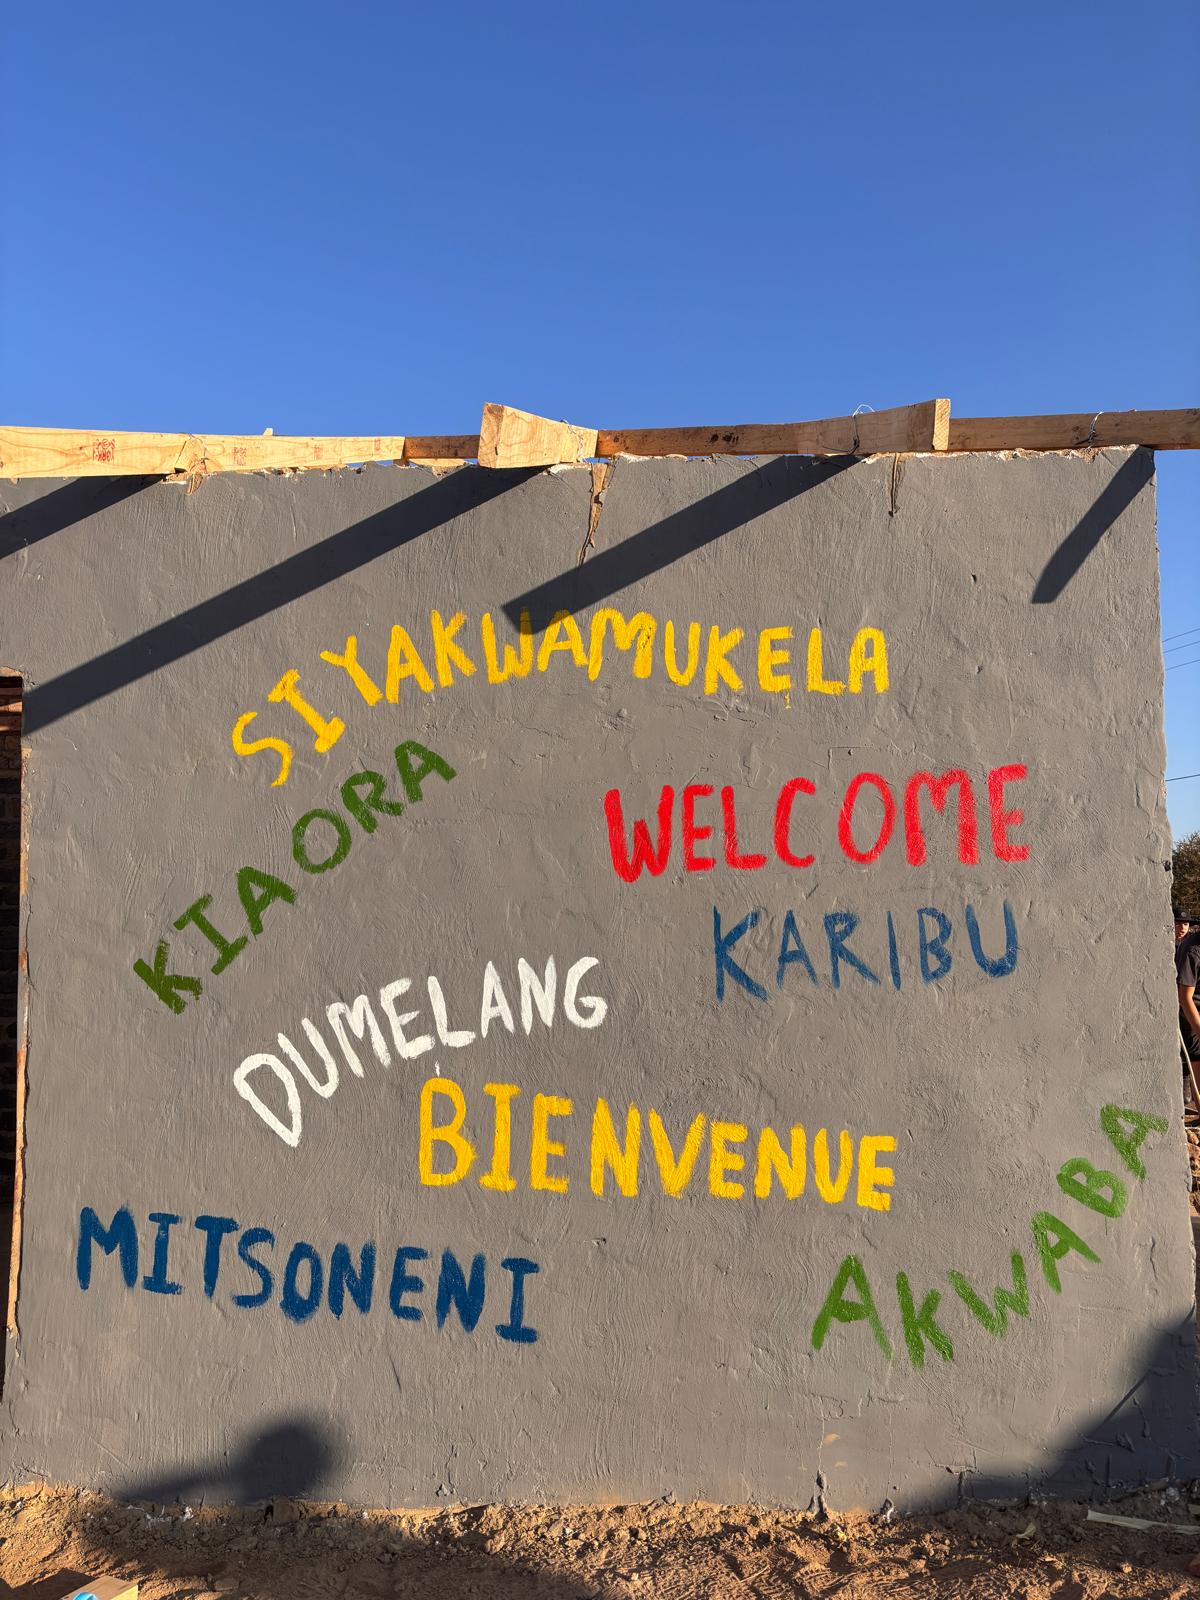 SIYAKWAMUKELA
KIAORA
WELCOME
KARIBU
DUMELANG
BIENVENUE
AKWABA
MITSONENI